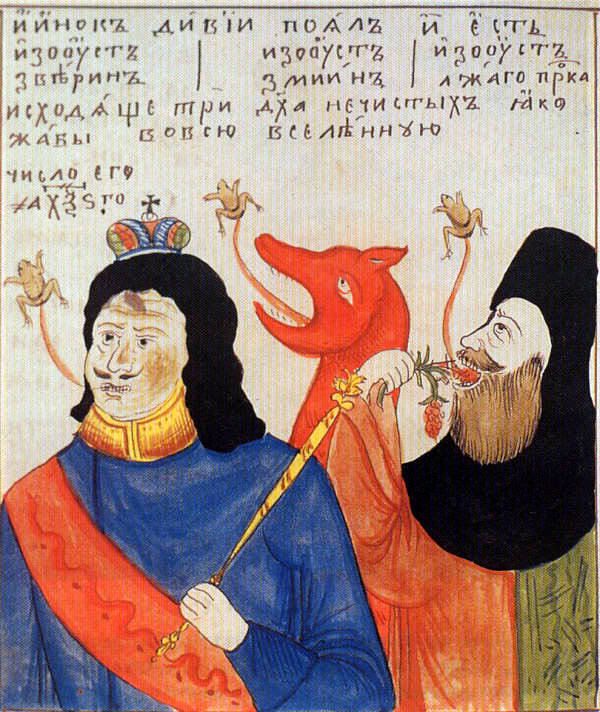 И҆И҆НОКЪ ДИ́ВІИ ПОѦ́ЛЪ И҆ Е҆СТЬ
И҆ЗОО҆́УСТЪ | И҆ЗОО҆́УСТЪ | И҆ЗОО҆́УСТЪ
ЗВѢ́РИНЪ | ЗМІИ́НЪ | ЛЖА́ГО ПР҇КА
ИСХОДѦ́ЩЕ ТРЍ Д҃ХА НЕЧИ́СТЫХЪ Ꙗ҆́КО
ЖА́БЫ ВОВСЮ̀ ВСЕЛЕ́ННУЮ
ЧИСЛО̀ ЕГО̀
҂АХ҃ѮЅ ГО